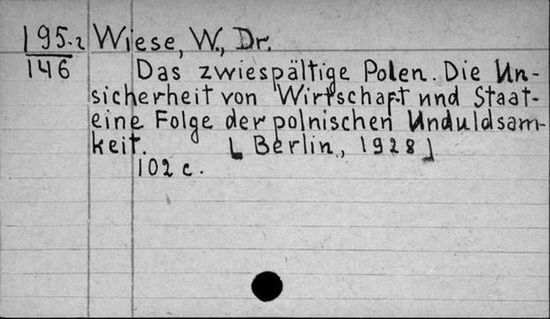 195-2 Wiese, W., Dr.
146 Das zwiespältige Polen. Die Un-
sicherheit von Wirtschaft und Staat-
eine Folge der polnischen Unduldsam-
keit. [Berlin, 1928]
102 c.